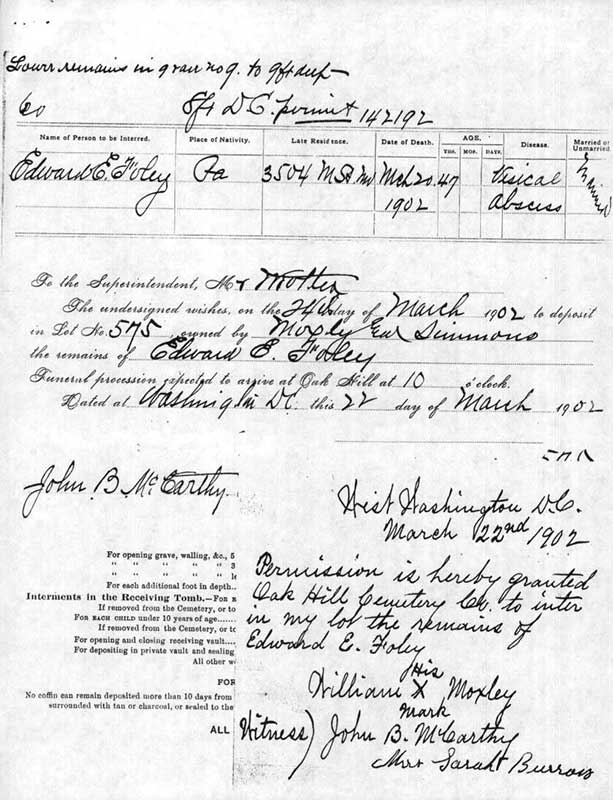 Lower remains in grave no 9. to 9ft deep
60 8ft D.C. permit 142192
Name of Person to be Interred. Place of Nativity. Late Residence. Date of Death. AGE. Disease. Married or Unmarried.
YRS. MOS. DAYS.
Edward E. Foley Pa 3504 M St. NW Mch 20. 47 Visical
1902 Abscess
To the Superintendent, Mr
The undersigned wishes, on the 24th day of March 1902 to deposit
in Lot No. 575 owned by Moxly Simmons
the remains of Edward E. Foley
Funeral procession expected to arrive at Oak Hill at 10 o'clock.
Dated at Washington DC. this 22 day of March 1902
John B McCarthy
West Washington D.C.
March 22nd 1902
For opening grave, walling, &c., 5
" " " " 3
" " " "
For each additional foot in depth..
Interments in the Receiving Tomb.—FOR
If removed from the Cemetery, or to
FOR EACH CHILD under 10 years of age......
If removed from the Cemetery, or to
For opening and closing receiving vault....
For depositing in private vault and sealing
All other
FOR
No coffin can remain deposited more than 10 days from
surrounded with tan or charcoal, or sealed to the
ALL
Permission is hereby granted
Oak Hill Cemetery Co. to inter
in my lot the remains of
Edward E. Foley
His
William X Moxley
Mark
Witness) John B. McCarthy
Mrs Sarah Burrows